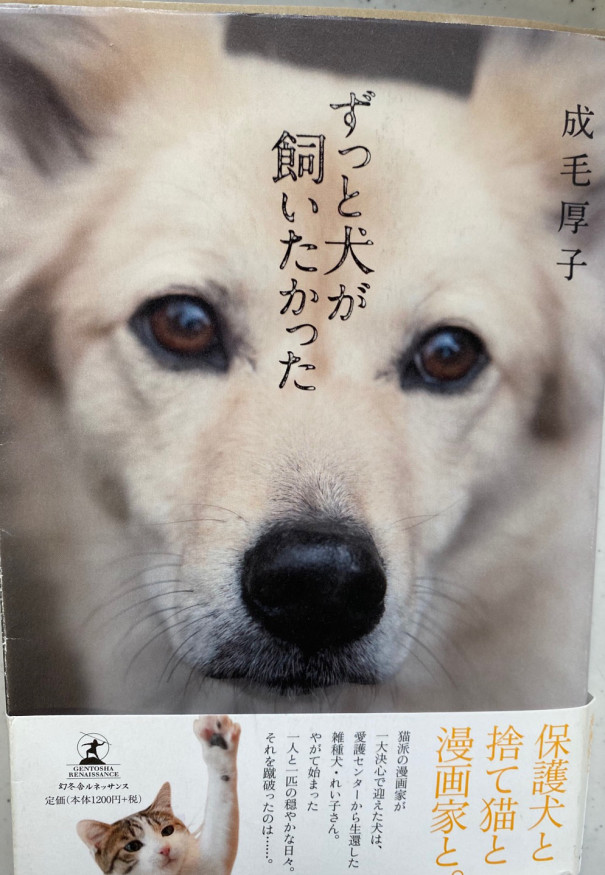 成毛厚子
ずっと犬が
飼いたかった
保護犬と
捨て猫と
漫画家と。
猫派の漫画家が
一大決心で迎えた犬は、
愛護センターから生還した
雑種犬・れい子さん。
やがて始まった
一人と一匹の穏やかな日々。
それを蹴破ったのは……。
GENTOSHA
RENAISSANCE
幻冬舎ルネッサンス
定価(本体1200円+税)